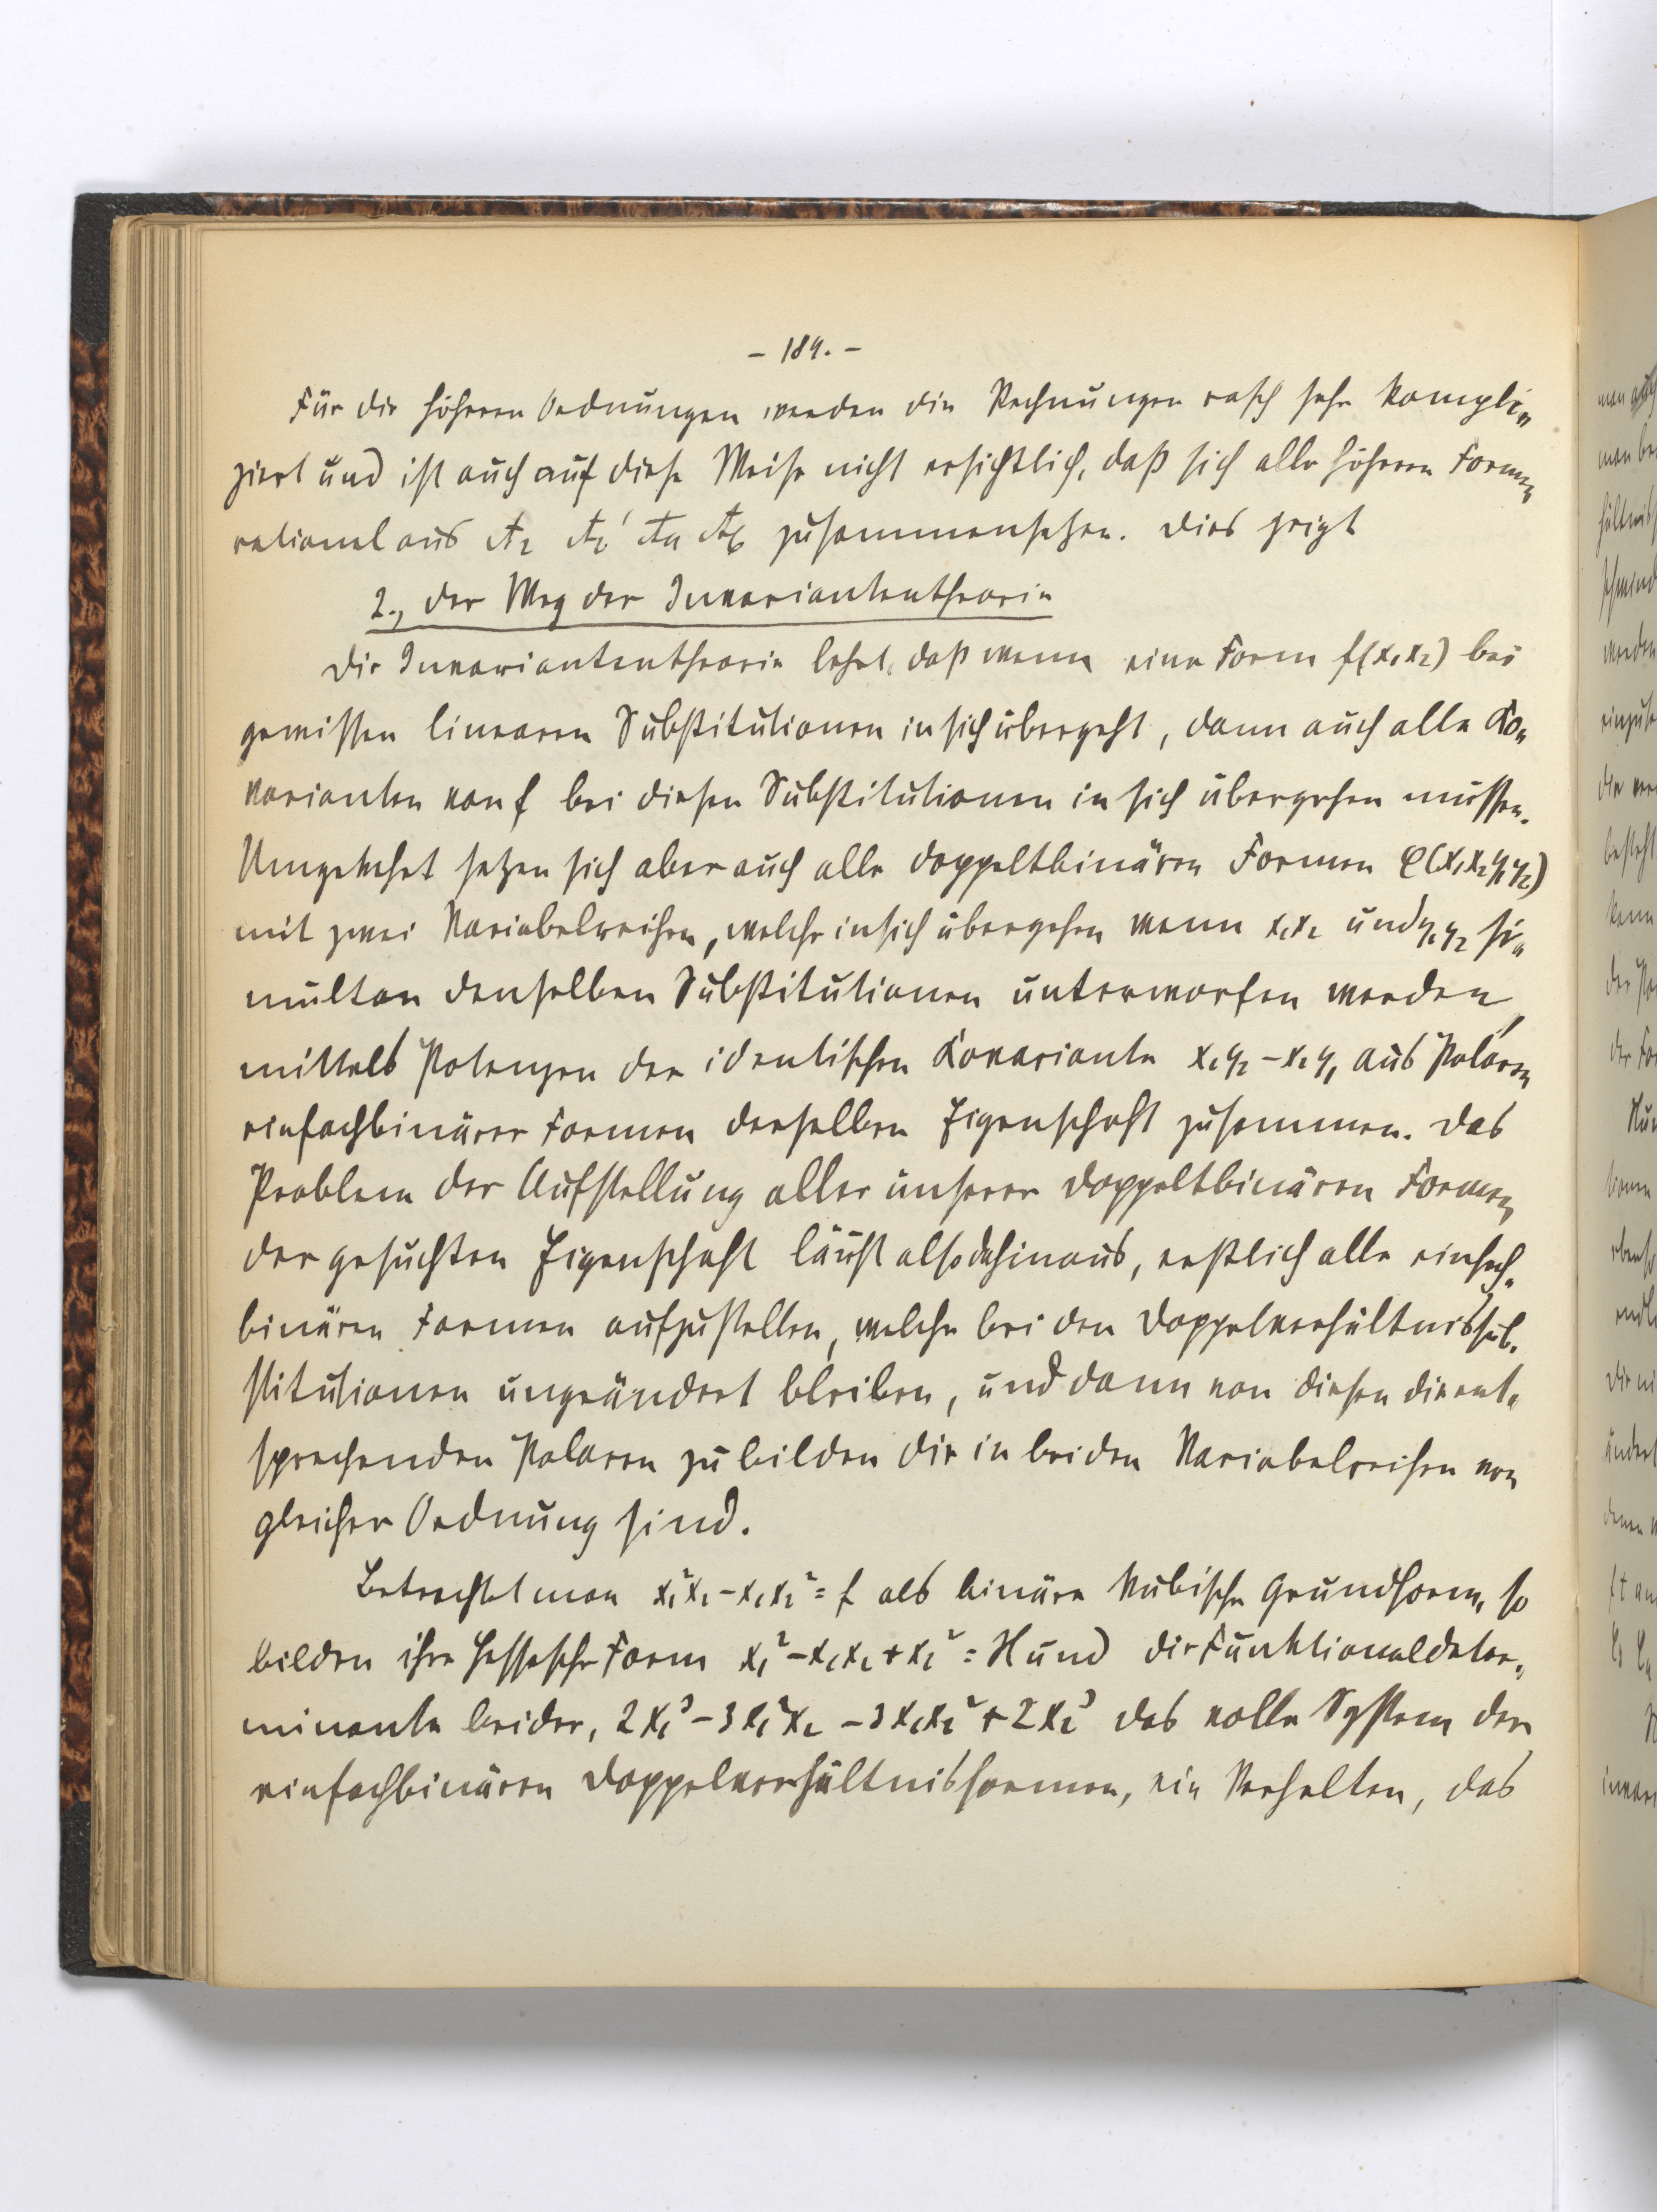 - 184. -
Für die höheren Ordnungen werden die Rechnungen rasch sehr kompli„
ziert und ist auch auf diese Weise nicht ersichtlich, daß sich alle höheren Formen
rational aus A₂ A₂' A₄ A₆ zusammensetzen. Dies zeigt
2., der Weg der Invariantentheorie
Die Invariantentheorie lehrt, daß wenn eine Form f(x₁x₂) bei
gewissen linearen Substitutionen in sich übergeht, dann auch alle Ko„
varianten von f bei diesen Substitutionen in sich übergehen müssen.
Umgekehrt setzen sich aber auch alle doppeltbinären Formen φ(x₁x₂y₁y₂)
mit zwei Variabelreihen, welche in sich übergehen wenn x₁x₂ und y₁y₂ si„
multan denselben Substitutionen unterworfen werden,
mittels Potenzen der identischen Kovariante x₁y₂-x₂y₁ aus Polaren
einfachbinärer Formen derselben Eigenschaft zusammen. Das
Problem der Aufstellung aller unserer doppeltbinären Formen
der gesuchten Eigenschaft läuft also dahinaus, erstlich alle einfach„
binären Formen aufzustellen, welche bei den Doppelverhältnissub„
stitutionen ungeändert bleiben, und dann von diesen die ent„
sprechenden Polaren zu bilden die in beiden Variabelreihen von
gleicher Ordnung sind.
Betrachtet man x₁²x₂-x₁x₂²=f als binäre kubische Grundform, so
bilden ihre Hessesche Form x₁²-x₁x₂+x₂²=H und die Funktionaldeter„
minante beider, 2x₁³-3x₁²x₂-3x₁x₂²+2x₂³ das volle System der
einfachbinären Doppelverhältnisformen, ein Verhalten, das